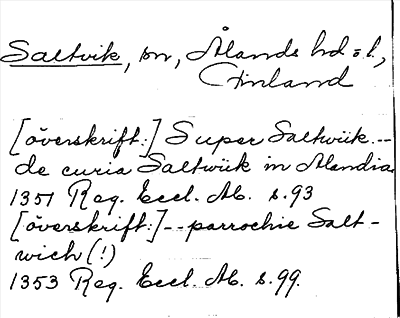 Saltvik, sn, Ålands hd o. l.,
Finland
[överskrift:] Super Saltwiik --
de curia Saltwiik in Alandia
1351 Reg. Eccl. Ab. s. 93
[överskrift:] -- parrochie Salt-
wich (!)
1353 Reg. Eccl. Ab. s. 99.